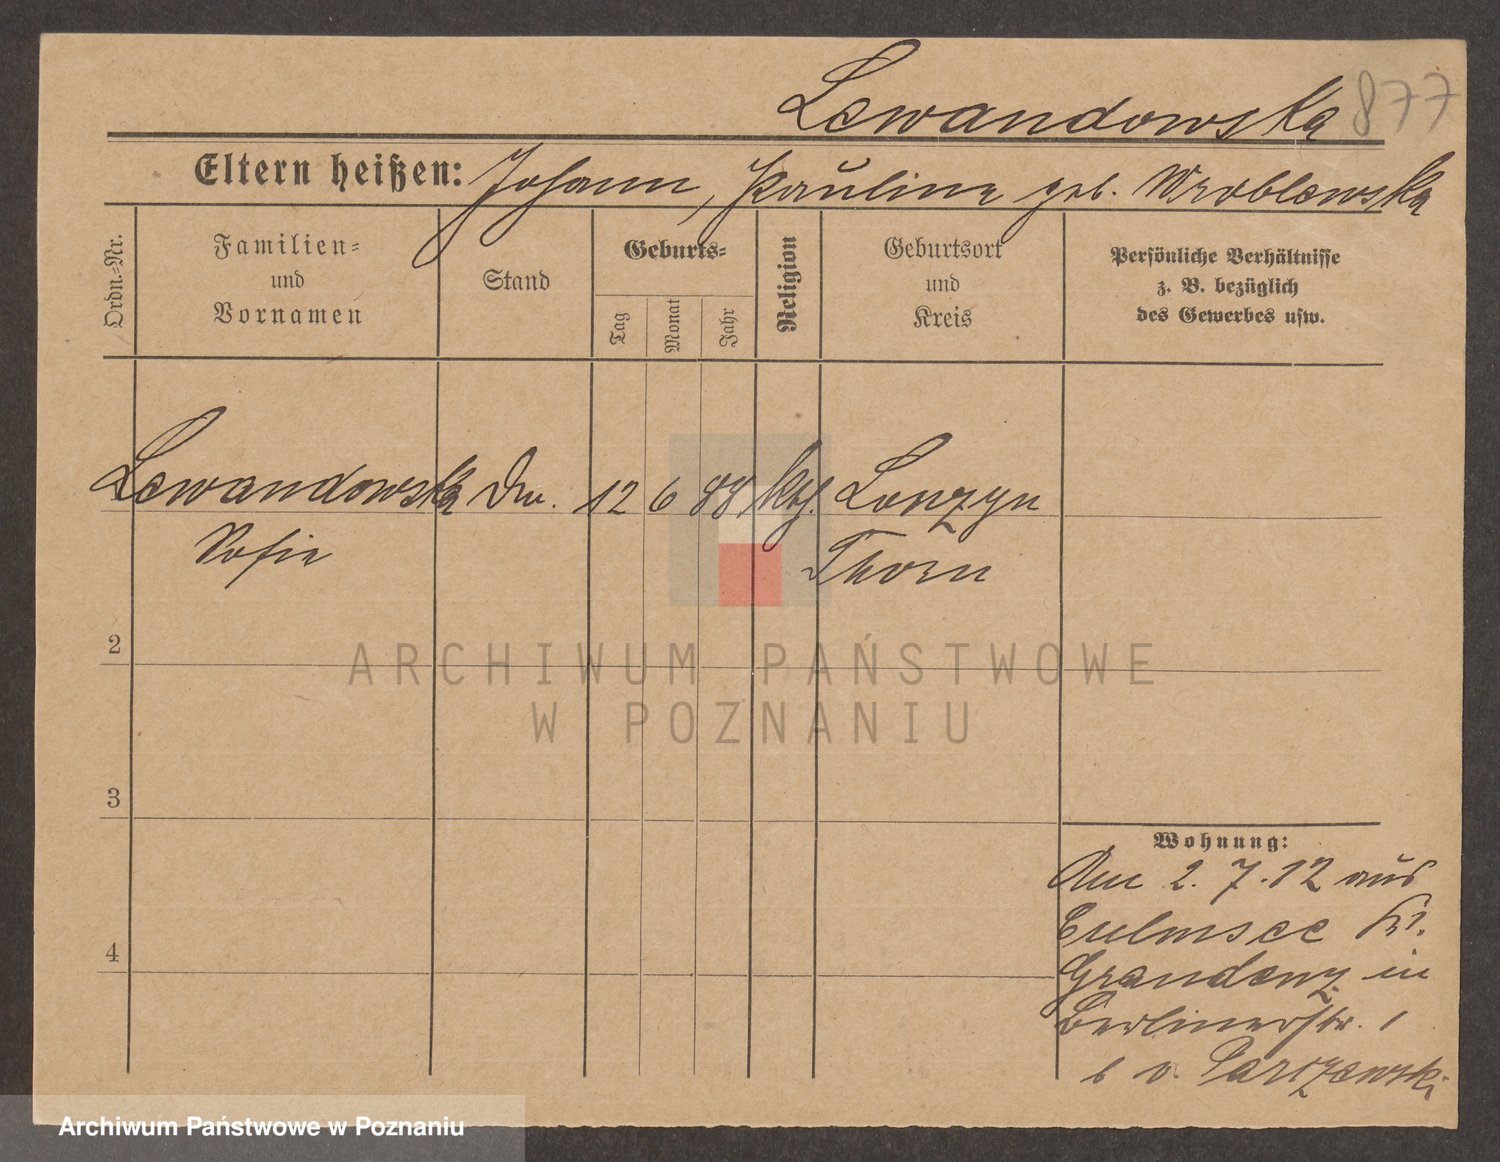 Lewandowska 877
Eltern heißen: Johann, Pauline geb. Wroblewska
Ordn.-Nr.
Familien-
und
Vornamen
Stand
Geburts-
Tag
Monat
Jahr
Religion
Geburtsort
und
Kreis
Persönliche Verhältnisse
z. B. bezüglich
des Gewerbes usw.
Lewandowska 12 6 88 kth. Lonzyn
Sofie Thorn
2
3
4
Wohnung:
Am 2. 7. 12 aus
Culmsee Kr.
Graudenz in
Berlinerstr. 1
b v. Parczewski
ARCHIWUM PAŃSTWOWE
W POZNANIU
Archiwum Państwowe w Poznaniu